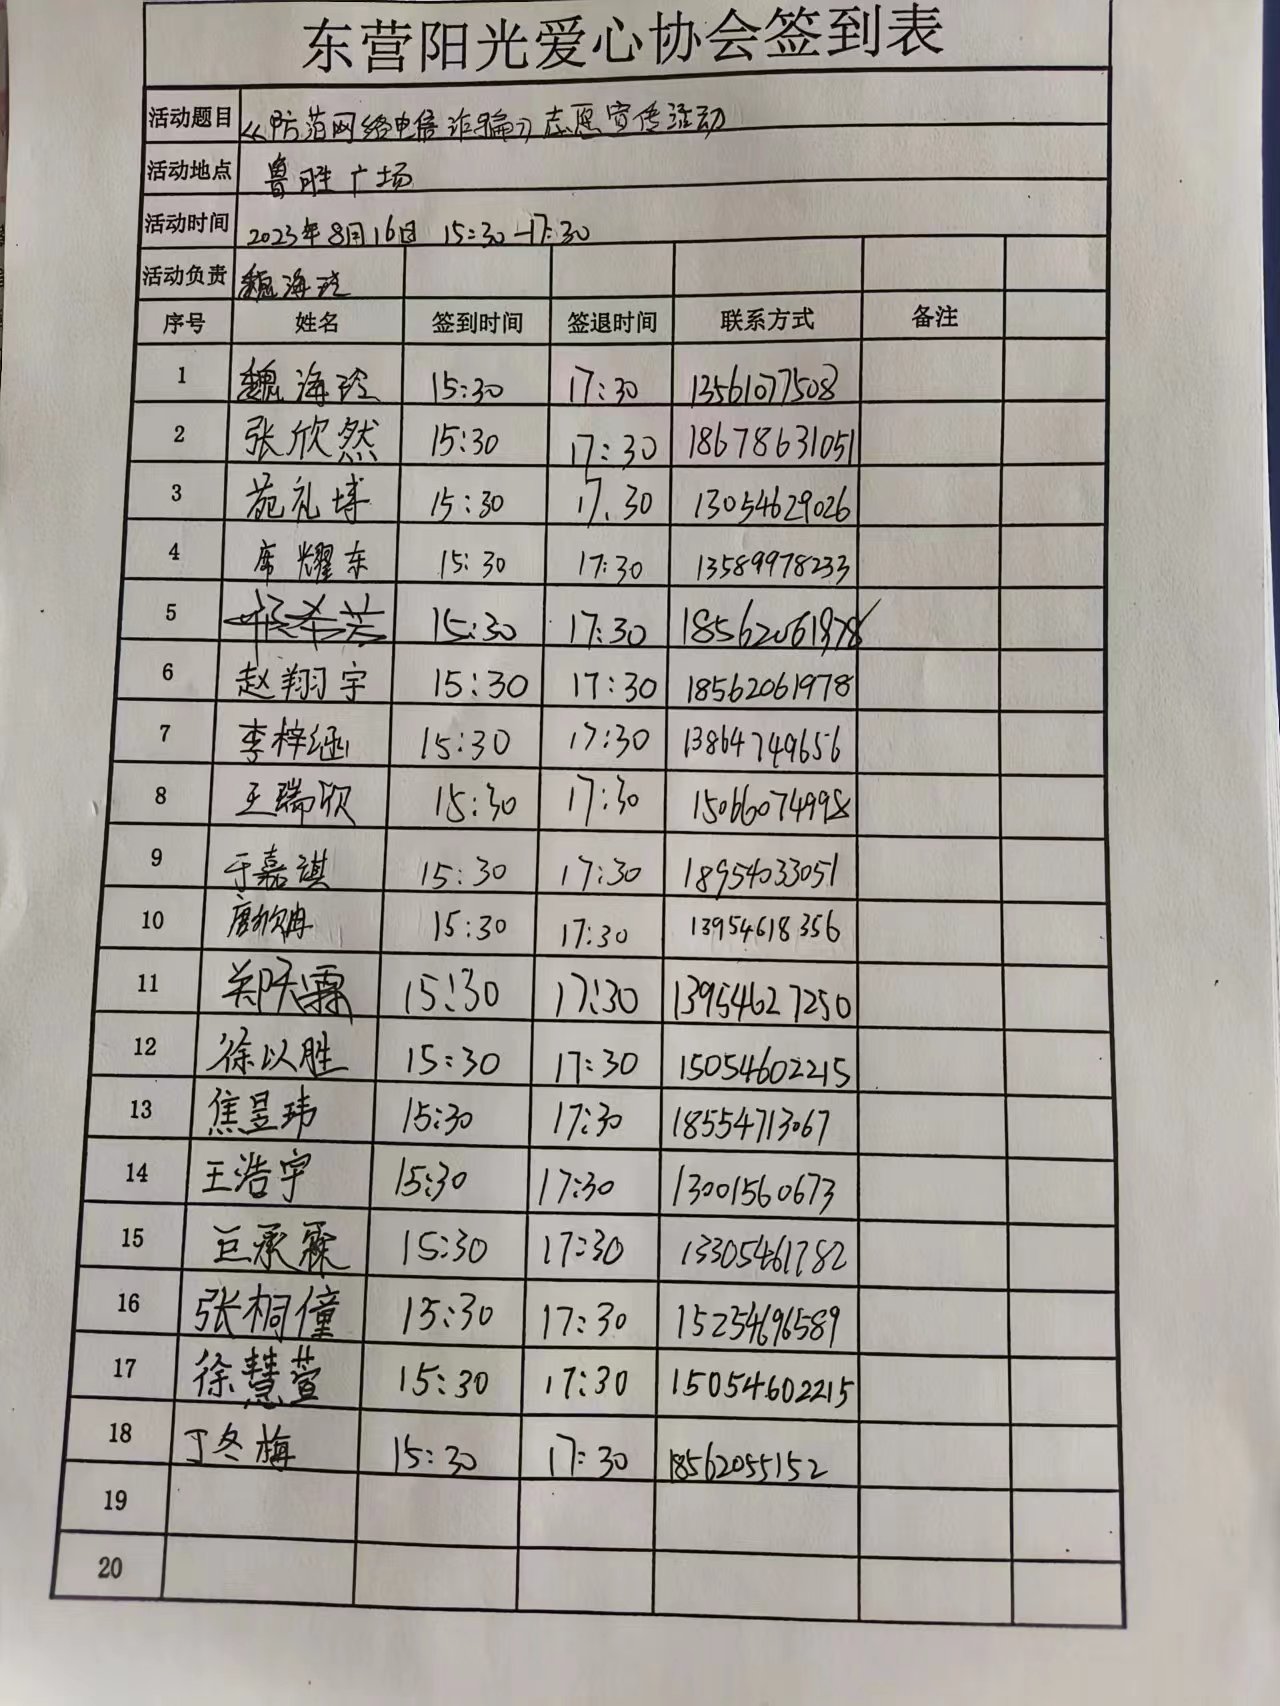 东营阳光爱心协会签到表
活动题目 《防范网络电信诈骗》志愿宣传活动
活动地点 鲁胜广场
活动时间 2023年8月16日 15:30-17:30
活动负责 魏海玲
序号 姓名 签到时间 签退时间 联系方式 备注
1 魏海玲 15:30 17:30 13561077508
2 张欣然 15:30 17:30 18678631051
3 苑礼博 15:30 17.30 13054629026
4 席耀东 15:30 17:30 13589978233
5 15:30 17:30 18562061978
6 赵翔宇 15:30 17:30 18562061978
7 李梓涵 15:30 17:30 13864749656
8 王瑞欣 15:30 17:30 15066074998
9 于嘉淇 15:30 17:30 18954033051
10 唐欣冉 15:30 17:30 13954618356
11 郑天霖 15:30 17:30 13954627250
12 徐以胜 15:30 17:30 15054602215
13 焦昱玮 15:30 17:30 18554713067
14 王浩宇 15:30 17:30 13001560673
15 巨承霖 15:30 17:30 13305461782
16 张桐僮 15:30 17:30 15254696589
17 徐慧萱 15:30 17:30 15054602215
18 丁冬梅 15:30 17:30 18562055152
19
20